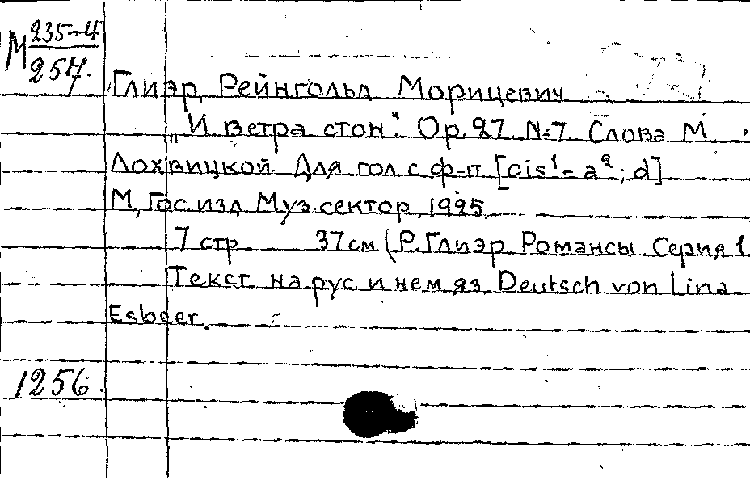 М 235-4
257.
Глиэр, Рейнгольд Морицевич
"И ветра стон". Ор. 27 №7 Слова М.
Лохвицкой Для гол с ф-п [cis¹-a²; d]
М, Гос. изд Муз. сектор 1925
7 стр 37 см (Р. Глиэр Романсы Серия 1
Текст на рус и нем яз Deutsch von Lina
Esbeer.
1256.